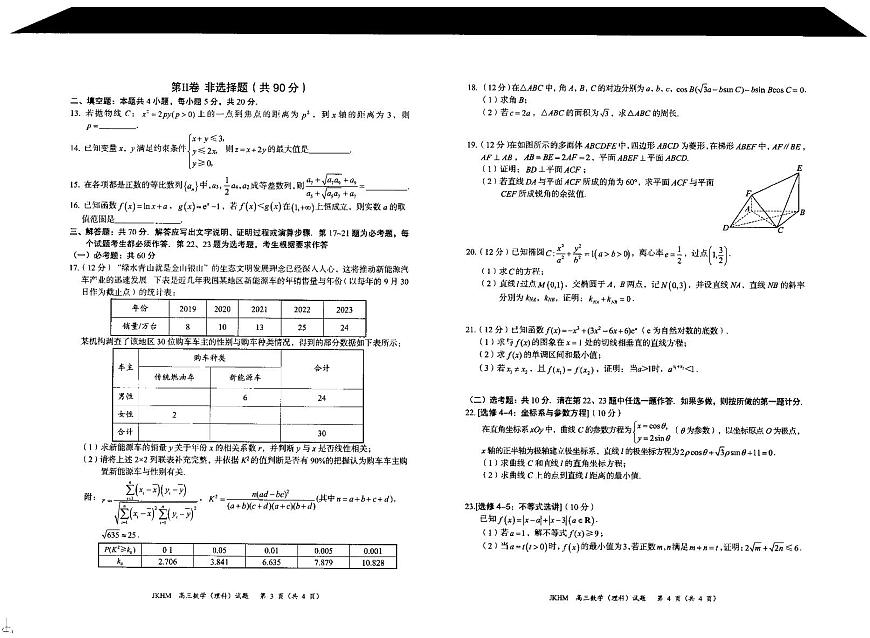 第II卷 非选择题(共90分)
二、填空题:本题共4小题,每小题5分,共20分.
13. 若抛物线 C: x²=2py(p>0) 上的一点到焦点的距离为 p², 到 x 轴的距离为 3, 则
p=______.
14. 已知变量 x, y 满足约束条件 {x+y≤3, y≤2x, y≥0, 则 z=x+2y 的最大值是______.
15. 在各项都是正数的等比数列{aₙ}中, a₃, 1/2 a₄, a₂ 成等差数列, 则
16. 已知函数 f(x)=ln x+a, g(x)=eˣ-1, 若 f(x)<g(x) 在(1,+∞)上恒成立, 则实数 a 的取
值范围是______.
三、解答题:共70分. 解答应写出文字说明、证明过程或演算步骤. 第17~21题为必考题,每
个试题考生都必须作答. 第22、23题为选考题,考生根据要求作答
(一)必考题:共60分
17.(12分)“绿水青山就是金山银山”的生态文明发展理念已经深入人心,这将推动新能源汽
车产业的迅速发展. 下表是近几年我国某地区新能源车的年销售量与年份(以每年的9月30
日作为截止点)的统计表:
年份 2019 2020 2021 2022 2023
销量/万台 8 10 13 25 24
某机构调查了该地区30位购车车主的性别与购车种类情况,得到的部分数据如下表所示:
车主 购车种类 合计
传统燃油车 新能源车
男性 6 24
女性 2
合计 30
(1)求新能源车的销量 y 关于年份 x 的相关系数 r, 并判断 y 与 x 是否线性相关;
(2)请将上述2×2列联表补充完整,并依据 K² 的值判断是否有90%的把握认为购车车主购
置新能源车与性别有关.
附: r=∑(xᵢ-x̄)(yᵢ-ȳ)/√(∑(xᵢ-x̄)²∑(yᵢ-ȳ)²), K²=n(ad-bc)²/((a+b)(c+d)(a+c)(b+d)) (其中 n=a+b+c+d),
√635≈25.
P(K²≥k₀) 0.1 0.05 0.01 0.005 0.001
k₀ 2.706 3.841 6.635 7.879 10.828
JKHM 高三数学(理科)试题 第3页(共4页)
18.(12分)在△ABC中,角A,B,C的对边分别为a,b,c, cos B(√3a-bsin C)-bsin Bcos C=0.
(1)求角B;
(2)若 c=2a, △ABC的面积为√3, 求△ABC的周长.
19.(12分)在如图所示的多面体ABCDFE中,四边形ABCD为菱形,在梯形ABEF中, AF∥BE,
AF⊥AB, AB=BE=2AF=2, 平面ABEF⊥平面ABCD.
(1)证明: BD⊥平面ACF;
(2)若直线DA与平面ACF所成的角为60°, 求平面ACF与平面
CEF所成锐角的余弦值.
E
F
A
B
D
C
20.(12分)已知椭圆 C: x²/a²+y²/b²=1(a>b>0), 离心率 e=1/2, 过点(1,3/2).
(1)求C的方程;
(2)直线l过点M(0,1), 交椭圆于A,B两点, 记N(0,3), 并设直线NA、直线NB的斜率
分别为k_NA, k_NB, 证明: k_NA+k_NB=0.
21.(12分)已知函数 f(x)=-x³+(3x²-6x+6)eˣ (e为自然对数的底数).
(1)求与 f(x) 的图象在 x=1 处的切线相垂直的直线方程;
(2)求 f(x) 的单调区间和最小值;
(3)若 x₁≠x₂, 且 f(x₁)=f(x₂), 证明: 当a>1时, a^(x₁+x₂)<1.
(二)选考题:共10分. 请在第22、23题中任选一题作答. 如果多做,则按所做的第一题计分.
22.[选修4-4:坐标系与参数方程](10分)
在直角坐标系xOy中,曲线C的参数方程为{x=cosθ, y=2sinθ (θ为参数), 以坐标原点O为极点,
x轴的正半轴为极轴建立极坐标系,直线l的极坐标方程为2ρcosθ+√3ρsinθ+11=0.
(1)求曲线C和直线l的直角坐标方程;
(2)求曲线C上的点到直线l距离的最小值.
23.[选修4-5:不等式选讲](10分)
已知 f(x)=|x-a|+|x-3|(a∈R).
(1)若 a=1, 解不等式 f(x)≥9;
(2)当 a=t(t>0)时, f(x)的最小值为3, 若正数m,n满足m+n=t, 证明: 2√m+√2n≤6.
JKHM 高三数学(理科)试题 第4页(共4页)